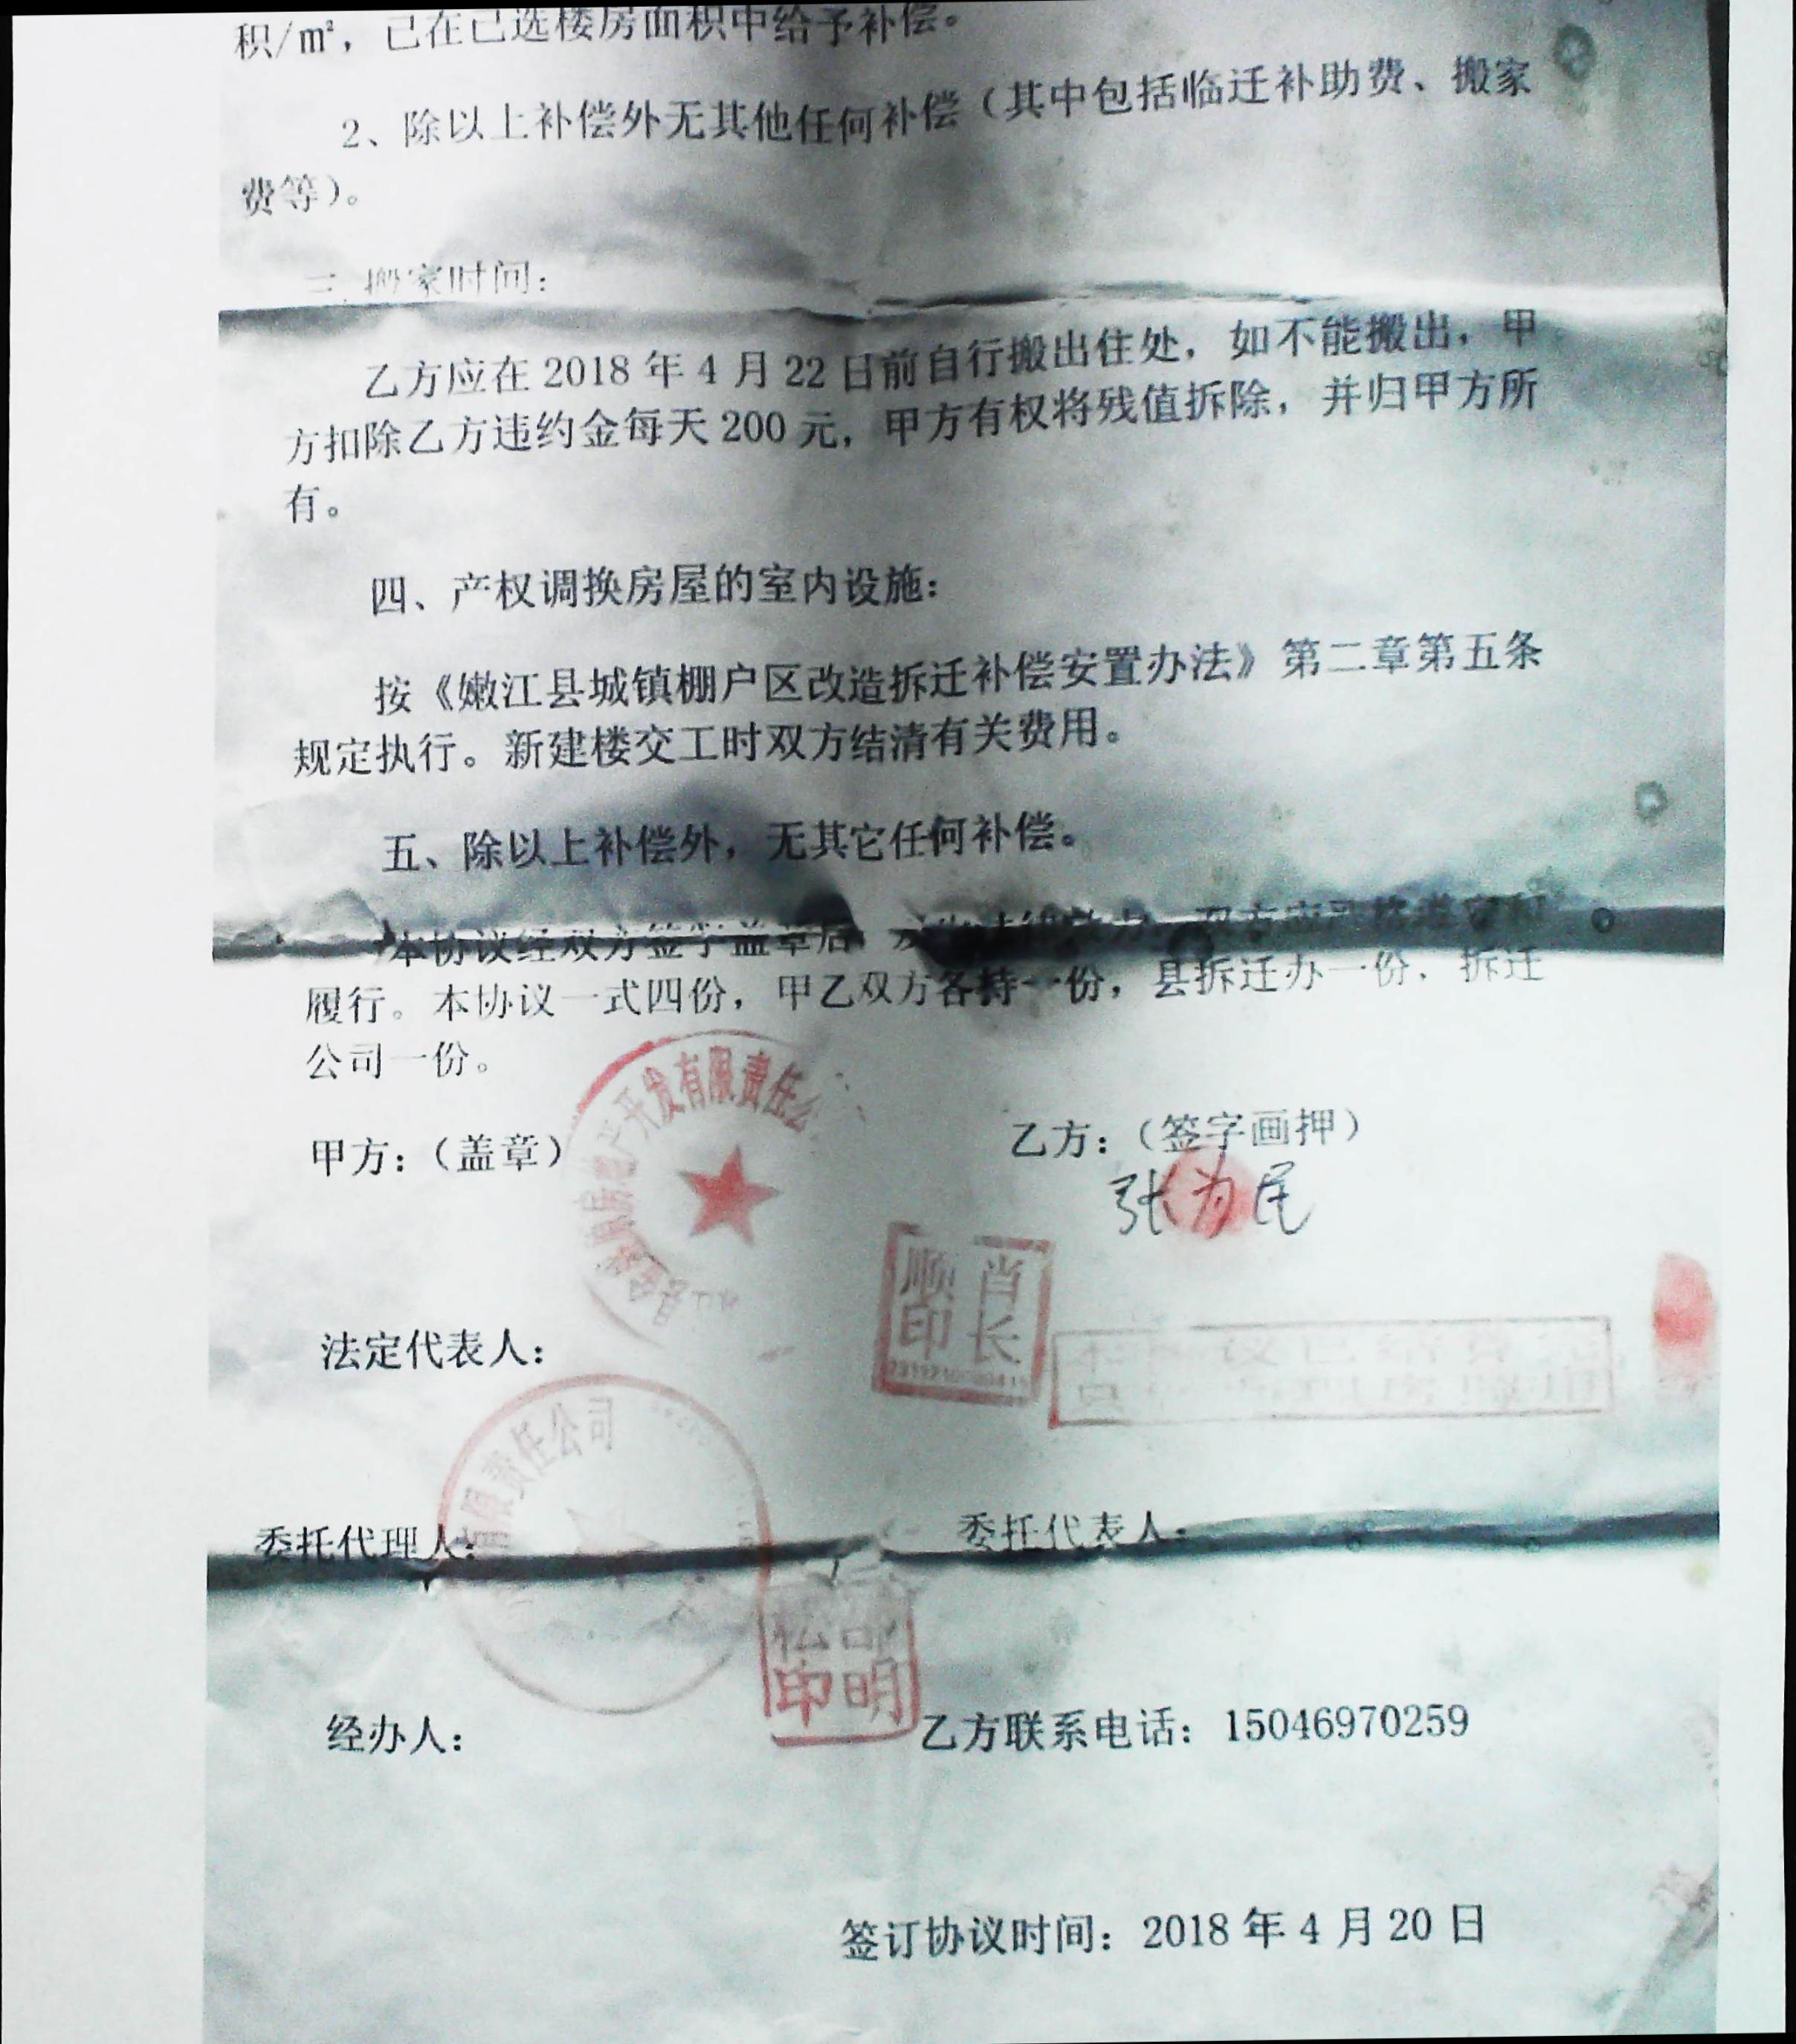 积/㎡，已在已选楼房面积中给予补偿。
2、除以上补偿外无其他任何补偿（其中包括临迁补助费、搬家
费等）。
三、搬家时间：
乙方应在 2018 年 4 月 22 日前自行搬出住处，如不能搬出，甲
方扣除乙方违约金每天 200 元，甲方有权将残值拆除，并归甲方所
有。
四、产权调换房屋的室内设施：
按《嫩江县城镇棚户区改造拆迁补偿安置办法》第二章第五条
规定执行。新建楼交工时双方结清有关费用。
五、除以上补偿外，无其它任何补偿。
本协议经双方签字盖章后 双方应严格遵守和
履行。本协议一式四份，甲乙双方各持一份，县拆迁办一份，拆迁
公司一份。
房地产开发有限责任公
甲方：（盖章）
乙方：（签字画押）
张为民
肖长顺印
法定代表人：
有限责任公司
委托代理人：
委托代表人：
明松印
经办人：
乙方联系电话：15046970259
签订协议时间：2018 年 4 月 20 日